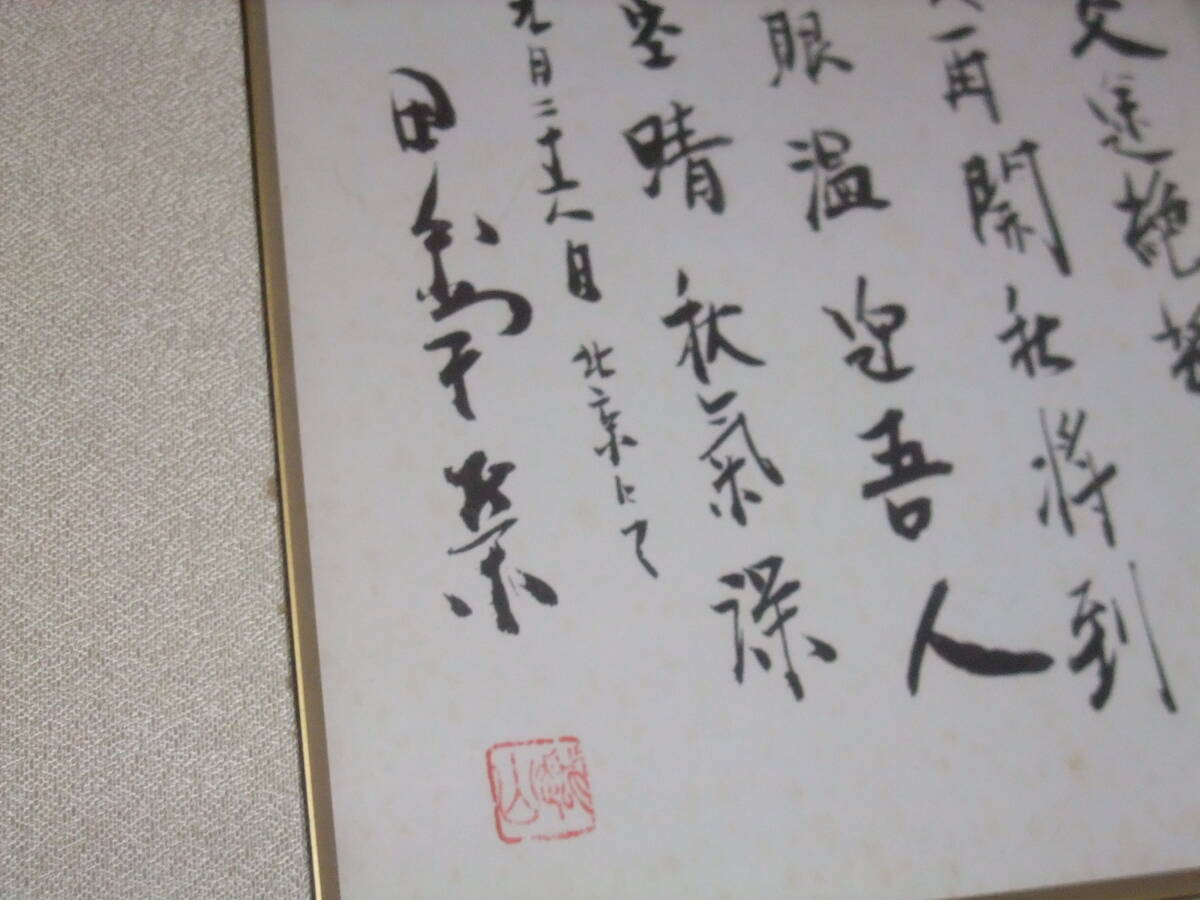 交途絶幾
再開秋将到
眼温迎吾人
空晴秋氣深
九月二十五日 北京にて
田中角榮